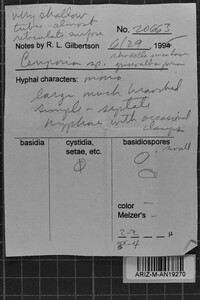 very shallow
tubes - almost
reticulate surface
No. 20663
Notes by R. L. Gilbertson 6/29 1994
Ceriporia sp.
Hyphal characters: mono
large much branched
simple-septate
hyphae with occasional
clamps
basidia
cystidia,
setae, etc.
basidiospores
small
color
Melzer's
μ
ARIZ-M-AN19270